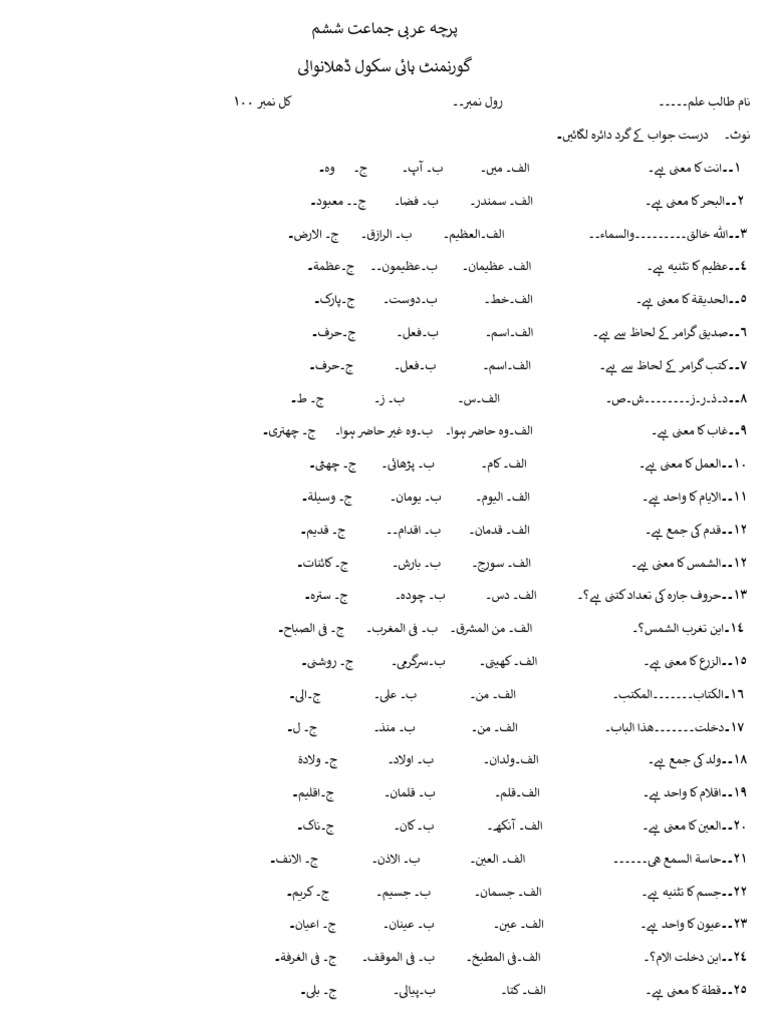 پرچہ عربی جماعت ششم
گورنمنٹ ہائی سکول ڈھلانوالی
نام طالب علم۔۔۔۔۔ رول نمبر۔۔ کل نمبر ۱۰۰
نوٹ۔ درست جواب کے گرد دائرہ لگائیں۔
۱۔۔انت کا معنی ہے۔ الف۔ میں۔ ب۔ آپ۔ ج۔ وہ۔
۲۔۔البحر کا معنی ہے۔ الف۔ سمندر۔ ب۔ فضا۔ ج۔۔ معبود۔
۳۔۔اللہ خالق۔۔۔۔۔۔۔۔۔والسماء۔۔ الف۔العظیم۔ ب۔ الرازق۔ ج۔ الارض۔
٤۔۔عظیم کا تثنیه ہے۔ الف۔ عظیمان۔ ب۔عظیمون۔۔ ج۔عظمة۔
٥۔۔الحدیقة کا معنی ہے۔ الف۔خط۔ ب۔دوست۔ ج۔پارک۔
٦۔۔صدیق گرامر کے لحاظ سے ہے۔ الف۔اسم۔ ب۔فعل۔ ج۔حرف۔
۷۔۔کتب گرامر کے لحاظ سے ہے۔ الف۔اسم۔ ب۔فعل۔ ج۔حرف۔
۸۔۔د۔ذ۔ر۔ز۔۔۔۔۔۔۔۔ش۔ص۔ الف۔س۔ ب۔ ز۔ ج۔ ط۔
۹۔۔غاب کا معنی ہے۔ الف۔وہ حاضر ہوا۔ ب۔وہ غیر حاضر ہوا۔ ج۔ چھتری۔
۱۰۔۔العمل کا معنی ہے۔ الف۔ کام۔ ب۔ پڑھائی۔ ج۔ چھٹی۔
۱۱۔۔الایام کا واحد ہے۔ الف۔ الیوم۔ ب۔ یومان۔ ج۔ وسیلة۔
۱۲۔۔قدم کی جمع ہے۔ الف۔ قدمان۔ ب۔ اقدام۔۔ ج۔ قدیم۔
۱۲۔۔الشمس کا معنی ہے۔ الف۔ سورج۔ ب۔ بارش۔ ج۔ کائنات۔
۱۳۔۔حروف جارہ کی تعداد کتنی ہے؟۔ الف۔ دس۔ ب۔ چودہ۔ ج۔ سترہ۔
۱٤۔۔این تغرب الشمس؟۔ الف۔ من المشرق۔ ب۔ فی المغرب۔ ج۔ فی الصباح۔
۱٥۔۔الزرع کا معنی ہے۔ الف۔ کھیتی۔ ب۔سرگرمی۔ ج۔ روشنی۔
۱٦۔الکتاب۔۔۔۔۔۔۔المکتب۔ الف۔ من۔ ب۔ علی۔ ج۔الی۔
۱۷۔دخلت۔۔۔۔۔۔۔ھذا الباب۔ الف۔ من۔ ب۔ منذ۔ ج۔ ل۔
۱۸۔۔ولد کی جمع ہے۔ الف۔ولدان۔ ب۔ اولاد۔ ج۔ ولادة
۱۹۔۔اقلام کا واحد ہے۔ الف۔قلم۔ ب۔ قلمان۔ ج۔اقلیم۔
۲۰۔۔العین کا معنی ہے۔ الف۔ آنکھ۔ ب۔ کان۔ ج۔ناک۔
۲۱۔۔حاسة السمع هی۔۔۔۔۔۔ الف۔ العین۔ ب۔ الاذن۔ ج۔ الانف۔
۲۲۔۔جسم کا تثنیه ہے۔ الف۔ جسمان۔ ب۔ جسیم۔ ج۔ کریم۔
۲۳۔۔عیون کا واحد ہے۔ الف۔ عین۔ ب۔ عینان۔ ج۔ اعیان۔
۲٤۔۔این دخلت الام؟۔ الف۔فی المطبخ۔ ب۔ فی الموقف۔ ج۔ فی الغرفة۔
۲٥۔۔قطة کا معنی ہے۔ الف۔ کتا۔ ب۔پیالی۔ ج۔ بلی۔